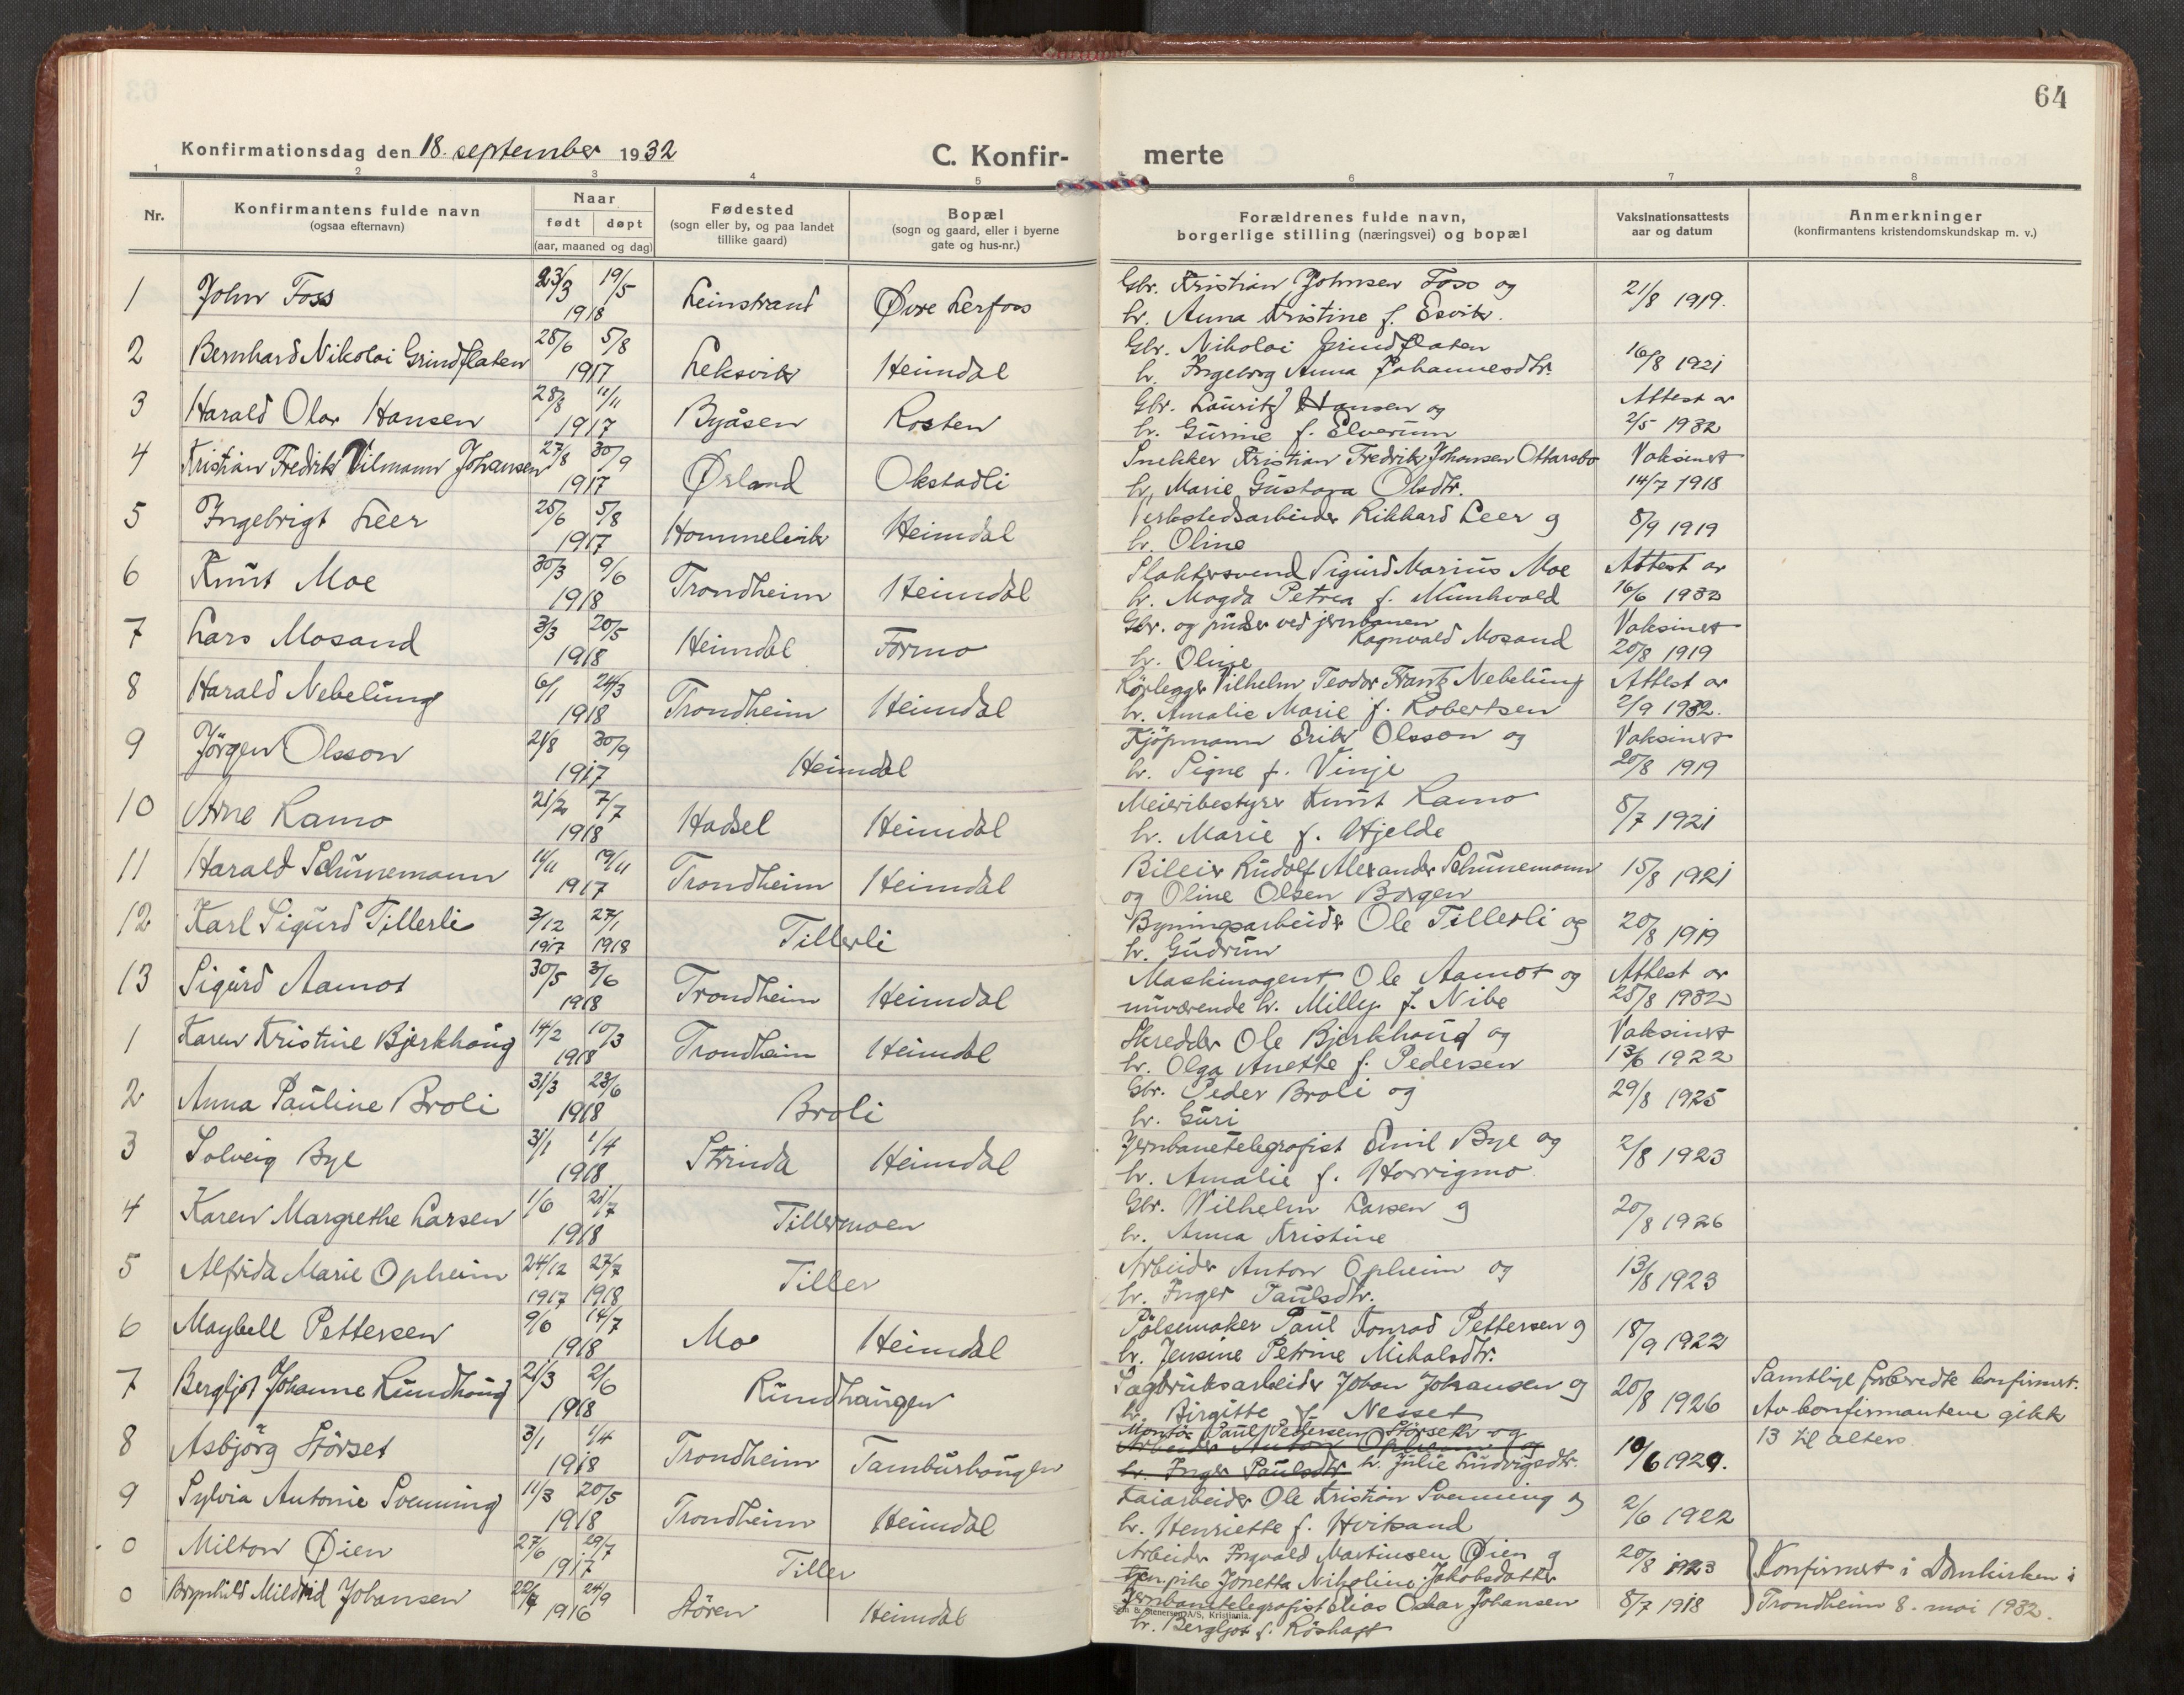 64
Konfirmationsdag den 18. september 1932
C. Konfir-merte
1 2 3 4 5 6 7 8
Nr. Konfirmantens fulde navn (ogsaa efternavn) Naar født døpt (aar, maaned og dag) Fødested (sogn eller by, og paa landet tillike gaard) Bopæl (sogn og gaard, eller i byerne gate og hus-nr.) Forældrenes fulde navn, borgerlige stilling (næringsvei) og bopæl Vaksinationsattests aar og datum Anmerkninger (konfirmantens kristendomskundskap m. v.)
1 John Foss 23/3 19/5 1918 Leinstrand Øvre Lerfoss Gbr. Kristian Johnsen Foss og
h. Anna Kristine f. Esvik. 21/8 1919.
2 Bernhard Nikolai Grindflaten 28/6 5/8 1917 Leksvik Heimdal Gbr. Nikolai Grindflaten
h. Ingeborg Anna Johannesdtr. 16/8 1921
3 Harald Olav Hansen 28/8 11/11 1917 Byåsen Rosten Gbr. Lauritz Hansen og
h. Gurine f. Elverum Attest av 2/5 1932
4 Kristian Fredrik Vilmann Johansen 27/8 30/9 1917 Ørland Okstadli Snekker Kristian Fredrik Johansen Ottarsbo
h. Marie Gustava Olsdtr. Vaksinert 14/7 1918
5 Ingebrigt Leer 25/6 5/8 1917 Hommelvik Heimdal Verkstedsarbeider Rikhard Leer og
h. Oline 8/9 1919
6 Knut Moe 30/3 9/6 1918 Trondheim Heimdal Slaktersvend Sigurd Marius Moe
h. Magda Petrea f. Munkvold Attest av 16/6 1932
7 Lars Mosand 3/3 20/5 1918 Heimdal Formo Gbr. og pudser ved jernbanen
Ragnvald Mosand
h. Oline Vaksinert 20/8 1919
8 Harald Nebelung 6/1 24/3 1918 Trondheim Heimdal Rørlegger Vilhelm Teodor Frantz Nebelung
h. Amalie Marie f. Robertsen Attest av 2/9 1932.
9 Jörgen Olsson 21/8 30/9 1917 Heimdal Kjöpmann Erik Olsson og
h. Signe f. Vinje Vaksinert 20/8 1919
10 Arne Ramo 21/2 7/7 1918 Hadsel Heimdal Meieribestyrer Knut Ramo
h. Marie f. Hjelde 8/7 1921
11 Harald Schünemann 11/11 19/11 1917 Trondheim Heimdal Bileier Rudolf Alexander Schünemann
og Oline Olsen Borgen 15/8 1921
12 Karl Sigurd Tillerli 3/12 1917 27/1 1918 Tillerli Bygningsarbeider Ole Tillerli og
h. Gudrun 20/8 1919
13 Sigurd Aamot 30/5 3/6 1918 Trondheim Heimdal Maskinagent Ole Aamot og
nuværende h. Milly f. Nibe Attest av 25/8 1932
1 Karen Kristine Bjerkhaug 14/2 10/3 1918 Trondheim Heimdal Skredder Ole Bjerkhaug og
h. Olga Anette f. Pedersen Vaksinert 13/6 1922
2 Anna Pauline Broli 31/3 23/6 1918 Broli Gbr. Peder Broli og
h. Guri 29/8 1925
3 Solveig Bye 31/1 1/4 1918 Strinda Heimdal Jernbanetelegrafist Emil Bye og
h. Amalie f. Horrigmo 2/8 1923
4 Karen Margrethe Larsen 1/6 21/7 1918 Tillermoen Gbr. Wilhelm Larsen og
h. Anna Kristine 20/8 1926
5 Alfrida Marie Opheim 24/12 1917 27/7 1918 Tiller Arbeider Anton Opheim og
h. Inger Paulsdtr. 13/8 1923
6 Maybell Pettersen 9/6 14/7 1918 Mo Heimdal Pölsemaker Paul Konrad Pettersen og
h. Jensine Petrine Mikalsdtr. 18/9 1922
7 Bergljot Johanne Rundhaug 21/3 2/6 1918 Rundhaugen Sagbruksarbeider Johan Johansen og
h. Birgitte f. Nesset 20/8 1926 Samtlige forberedte konfirmert.
Av konfirmantene gikk
13 til alters
8 Asbjörg Störset 3/1 1/4 1918 Trondheim Tamburhaugen Montör Paul Pedersen Störseth og
Arbeider Anton Opheim og
h. Inger Paulsdtr. h. Julie Ludvigsdtr. 10/6 1929.
9 Sylvia Antonie Svenning 11/3 20/5 1918 Trondheim Heimdal Kaiarbeider Ole Kristian Svenning og
h. Henriette f. Hvitsand 2/6 1922
0 Milton Øien 27/6 29/7 1917 Tiller Arbeider Ingvald Martinsen Øien og
tjen.pike Jonetta Nikoline Jakobsdatter 20/8 1923 Konfirmert i Domkirken i
0 Brynhild Mildrid Johansen 24/9 1916 Stören Heimdal Jernbanetelegrafist Elias Oskar Johansen
h. Bergljot f. Röshaft 8/7 1918 Trondheim 8. mai 1932.
Stenersen A/S, Kristiania.